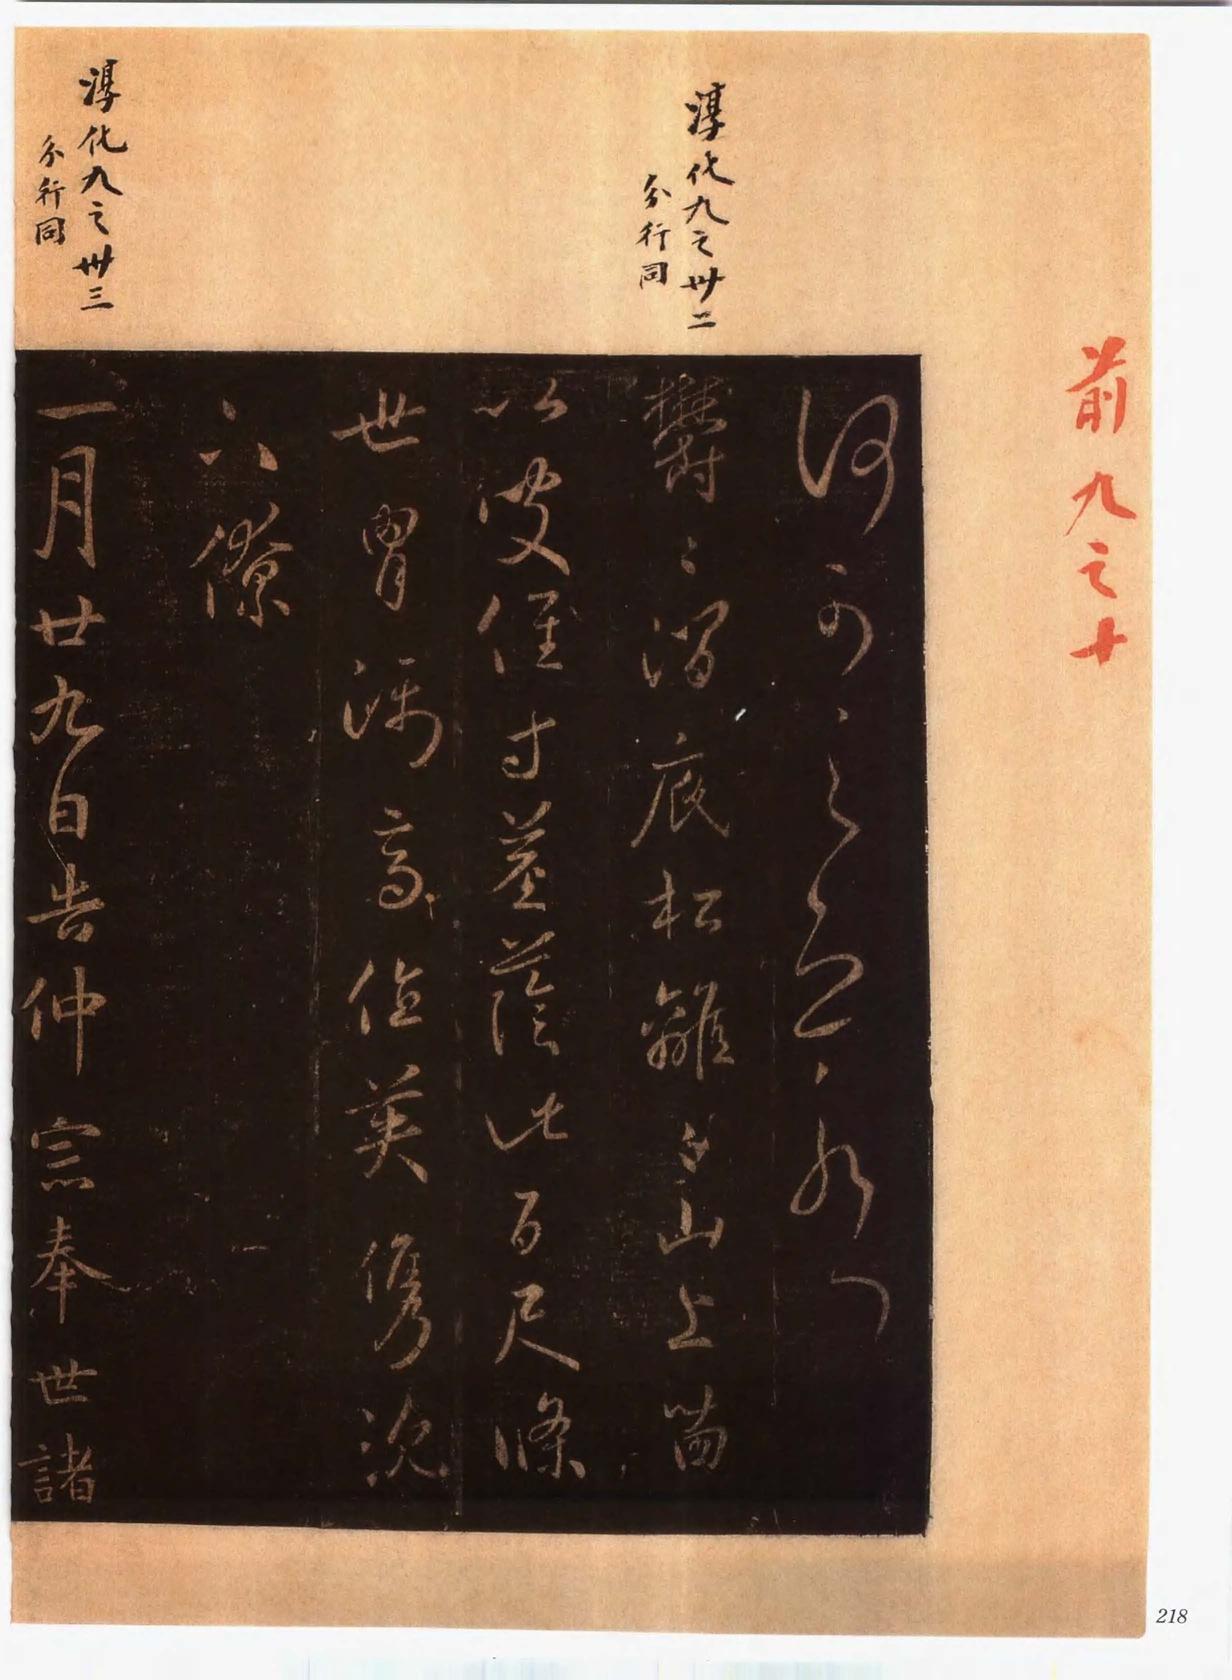 前九之十
淳化九之卅二
分行同
淳化九之卅三
分行同
何可
欝〻澗底松離〻山上苗
以彼徑寸莖蔭此百尺條
世冑躡高位英雋沉
下僚
二月廿九日告仲宗奉世諸
218